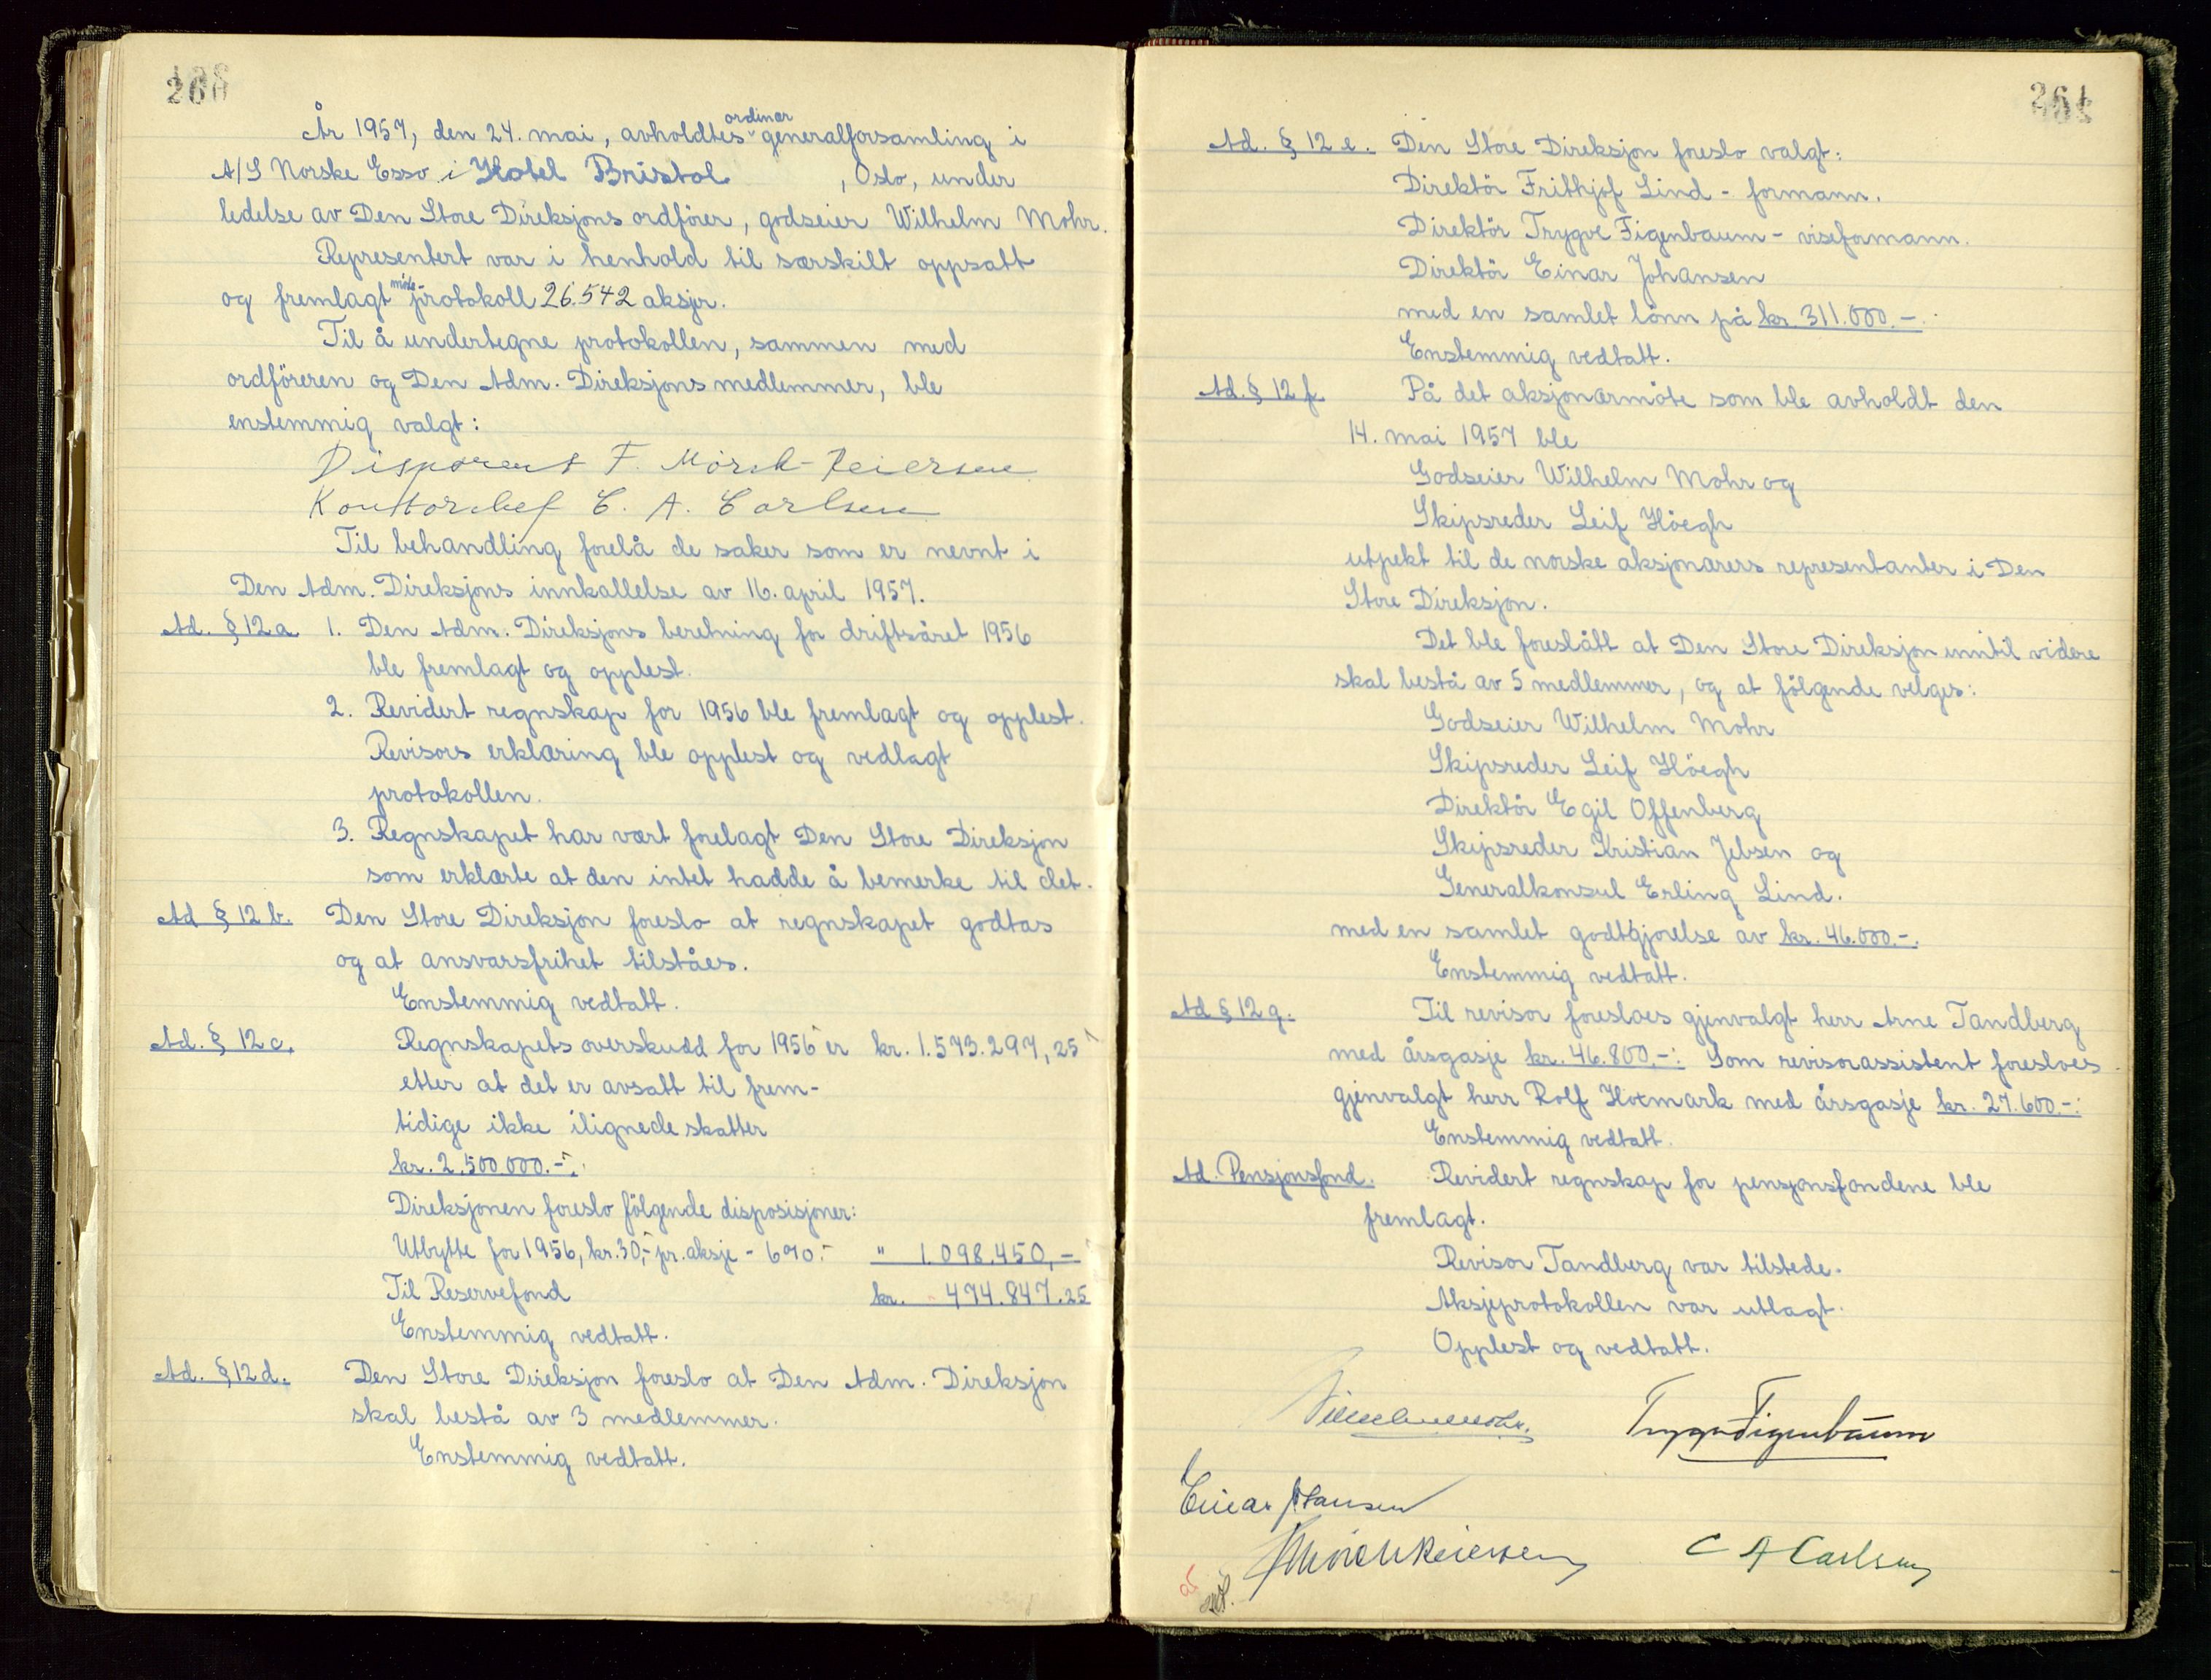 260
År 1957, den 24. mai, avholdtes ordinær generalforsamling i
A/S Norske Esso i Hotel Bristol , Oslo, under
ledelse av Den Store Direksjons ordförer, godseier Wilhelm Mohr.
Representert var i henhold til særskilt oppsatt
og fremlagt möte-protokoll 26.542 aksjer.
Til å undertegne protokollen, sammen med
ordföreren og Den Adm. Direksjons medlemmer, ble
enstemmig valgt:
Disponent F. Mörch-Reiersen
Kontorchef C. A. Carlsen
Til behandling forelå de saker som er nevnt i
Den Adm. Direksjons innkallelse av 16. april 1957.
Ad. § 12 a 1. Den Adm. Direksjons beretning for driftsåret 1956
ble fremlagt og opplest.
2. Revidert regnskap for 1956 ble fremlagt og opplest.
Revisors erklæring ble opplest og vedlagt
protokollen.
3. Regnskapet har vært forelagt Den Store Direksjon
som erklærte at den intet hadde å bemerke til det.
Ad § 12 b. Den Store Direksjon foreslo at regnskapet godtas
og at ansvarsfrihet tilståes.
Enstemmig vedtatt.
Ad. § 12 c. Regnskapets overskudd for 1956 er kr. 1.573.297,25
etter at det er avsatt til frem-
tidige ikke ilignede skatter
kr. 2.500.000.-.
Direksjonen foreslo fölgende disposisjoner:
Utbytte for 1956, kr. 30,- pr. aksje - 6% - " 1.098.450,-
Til Reservefond kr. 474.847.25
Enstemmig vedtatt.
Ad. § 12 d. Den Store Direksjon foreslo at Den Adm. Direksjon
skal bestå av 3 medlemmer.
Enstemmig vedtatt.
261
Ad. § 12 e. Den Store Direksjon foreslo valgt:
Direktör Frithjof Lind - formann.
Direktör Trygve Figenbaum - viseformann.
Direktör Einar Johansen
med en samlet lönn på kr. 311.000.-.
Enstemmig vedtatt.
Ad. § 12 f. På det aksjonærmöte som ble avholdt den
14. mai 1957 ble
Godseier Wilhelm Mohr og
Skipsreder Leif Höegh
utpekt til de norske aksjonærers representanter i Den
Store Direksjon.
Det ble foreslått at Den Store Direksjon inntil videre
skal bestå av 5 medlemmer, og at fölgende velges:
Godseier Wilhelm Mohr
Skipsreder Leif Höegh
Direktör Egil Offenberg
Skipsreder Kristian Jebsen og
Generalkonsul Erling Lind.
med en samlet godtgjorelse av kr. 46.000.-.
Enstemmig vedtatt.
Ad § 12 g. Til revisor foresloes gjenvalgt herr Arne Tandberg
med årsgasje kr. 46.800.-. Som revisorassistent foresloes
gjenvalgt herr Rolf Hoxmark med årsgasje kr. 27.600.-.
Enstemmig vedtatt.
Ad. Pensjonsfond. Revidert regnskap for pensjonsfondene ble
fremlagt.
Revisor Tandberg var tilstede.
Aksjeprotokollen var utlagt.
Opplest og vedtatt.
Wilhelm Mohr. Trygve Figenbaum
Einar Johansen
F Mörch Reiersen C A Carlsen